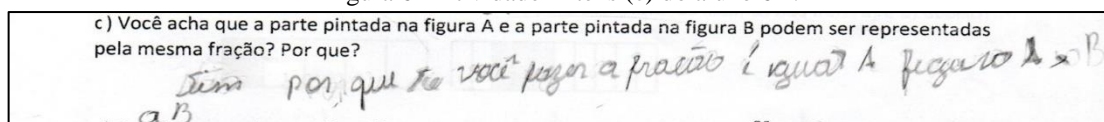 c) Você acha que a parte pintada na figura A e a parte pintada na figura B podem ser representadas
pela mesma fração? Por que?
Sim por que se você fazer a fração é igual A B
a B